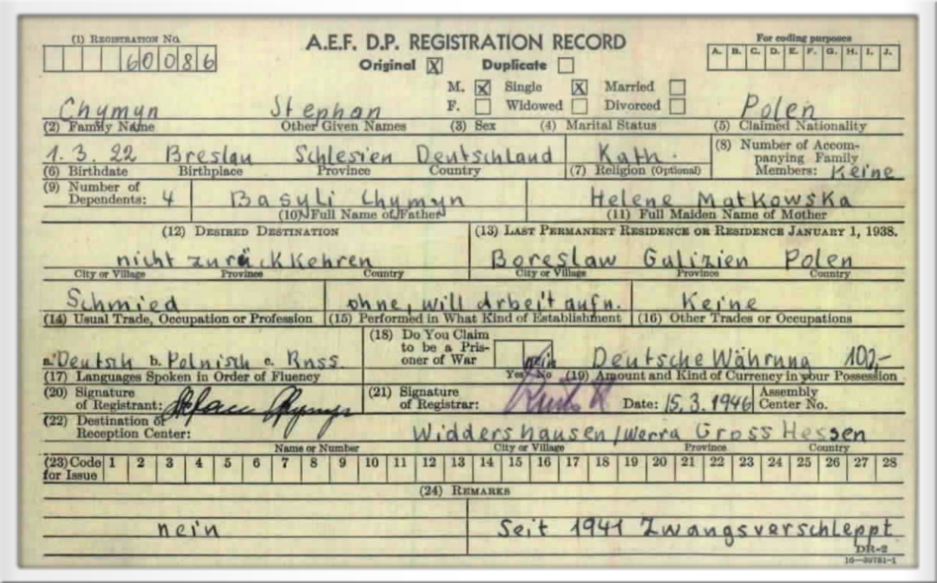 (1) Registration No.
60086
A.E.F. D.P. REGISTRATION RECORD
Original X Duplicate
For coding purposes
A. B. C. D. E. F. G. H. I. J.
M. X Single X Married
F. Widowed Divorced
Chymyn Stephan Polen
(2) Family Name Other Given Names (3) Sex (4) Marital Status (5) Claimed Nationality
1. 3. 22 Breslau Schlesien Deutschland Kath.
(6) Birthdate Birthplace Province Country (7) Religion (Optional)
(8) Number of Accompanying Family Members: Keine
(9) Number of Dependents: 4
Basyli Chymyn Helene Matkowska
(10) Full Name of Father (11) Full Maiden Name of Mother
(12) Desired Destination (13) Last Permanent Residence or Residence January 1, 1938.
nicht zurückkehren Boreslaw Galizien Polen
City or Village Province Country City or Village Province Country
Schmied ohne, will Arbeit aufn. Keine
(14) Usual Trade, Occupation or Profession (15) Performed in What Kind of Establishment (16) Other Trades or Occupations
a. Deutsch b. Polnisch c. Russ.
(17) Languages Spoken in Order of Fluency
(18) Do You Claim to be a Prisoner of War
nein Deutsche Währung 100,-
Yes No (19) Amount and Kind of Currency in your Possession
(20) Signature of Registrant:
(21) Signature of Registrar:
Date: 15.3.1946 Assembly Center No.
(22) Destination or Reception Center:
Widdershausen/Werra Gross Hessen
Name or Number City or Village Province Country
(23) Code for Issue 1 2 3 4 5 6 7 8 9 10 11 12 13 14 15 16 17 18 19 20 21 22 23 24 25 26 27 28
(24) Remarks
nein Seit 1941 Zwangsverschleppt
DR-2
16—39781-1